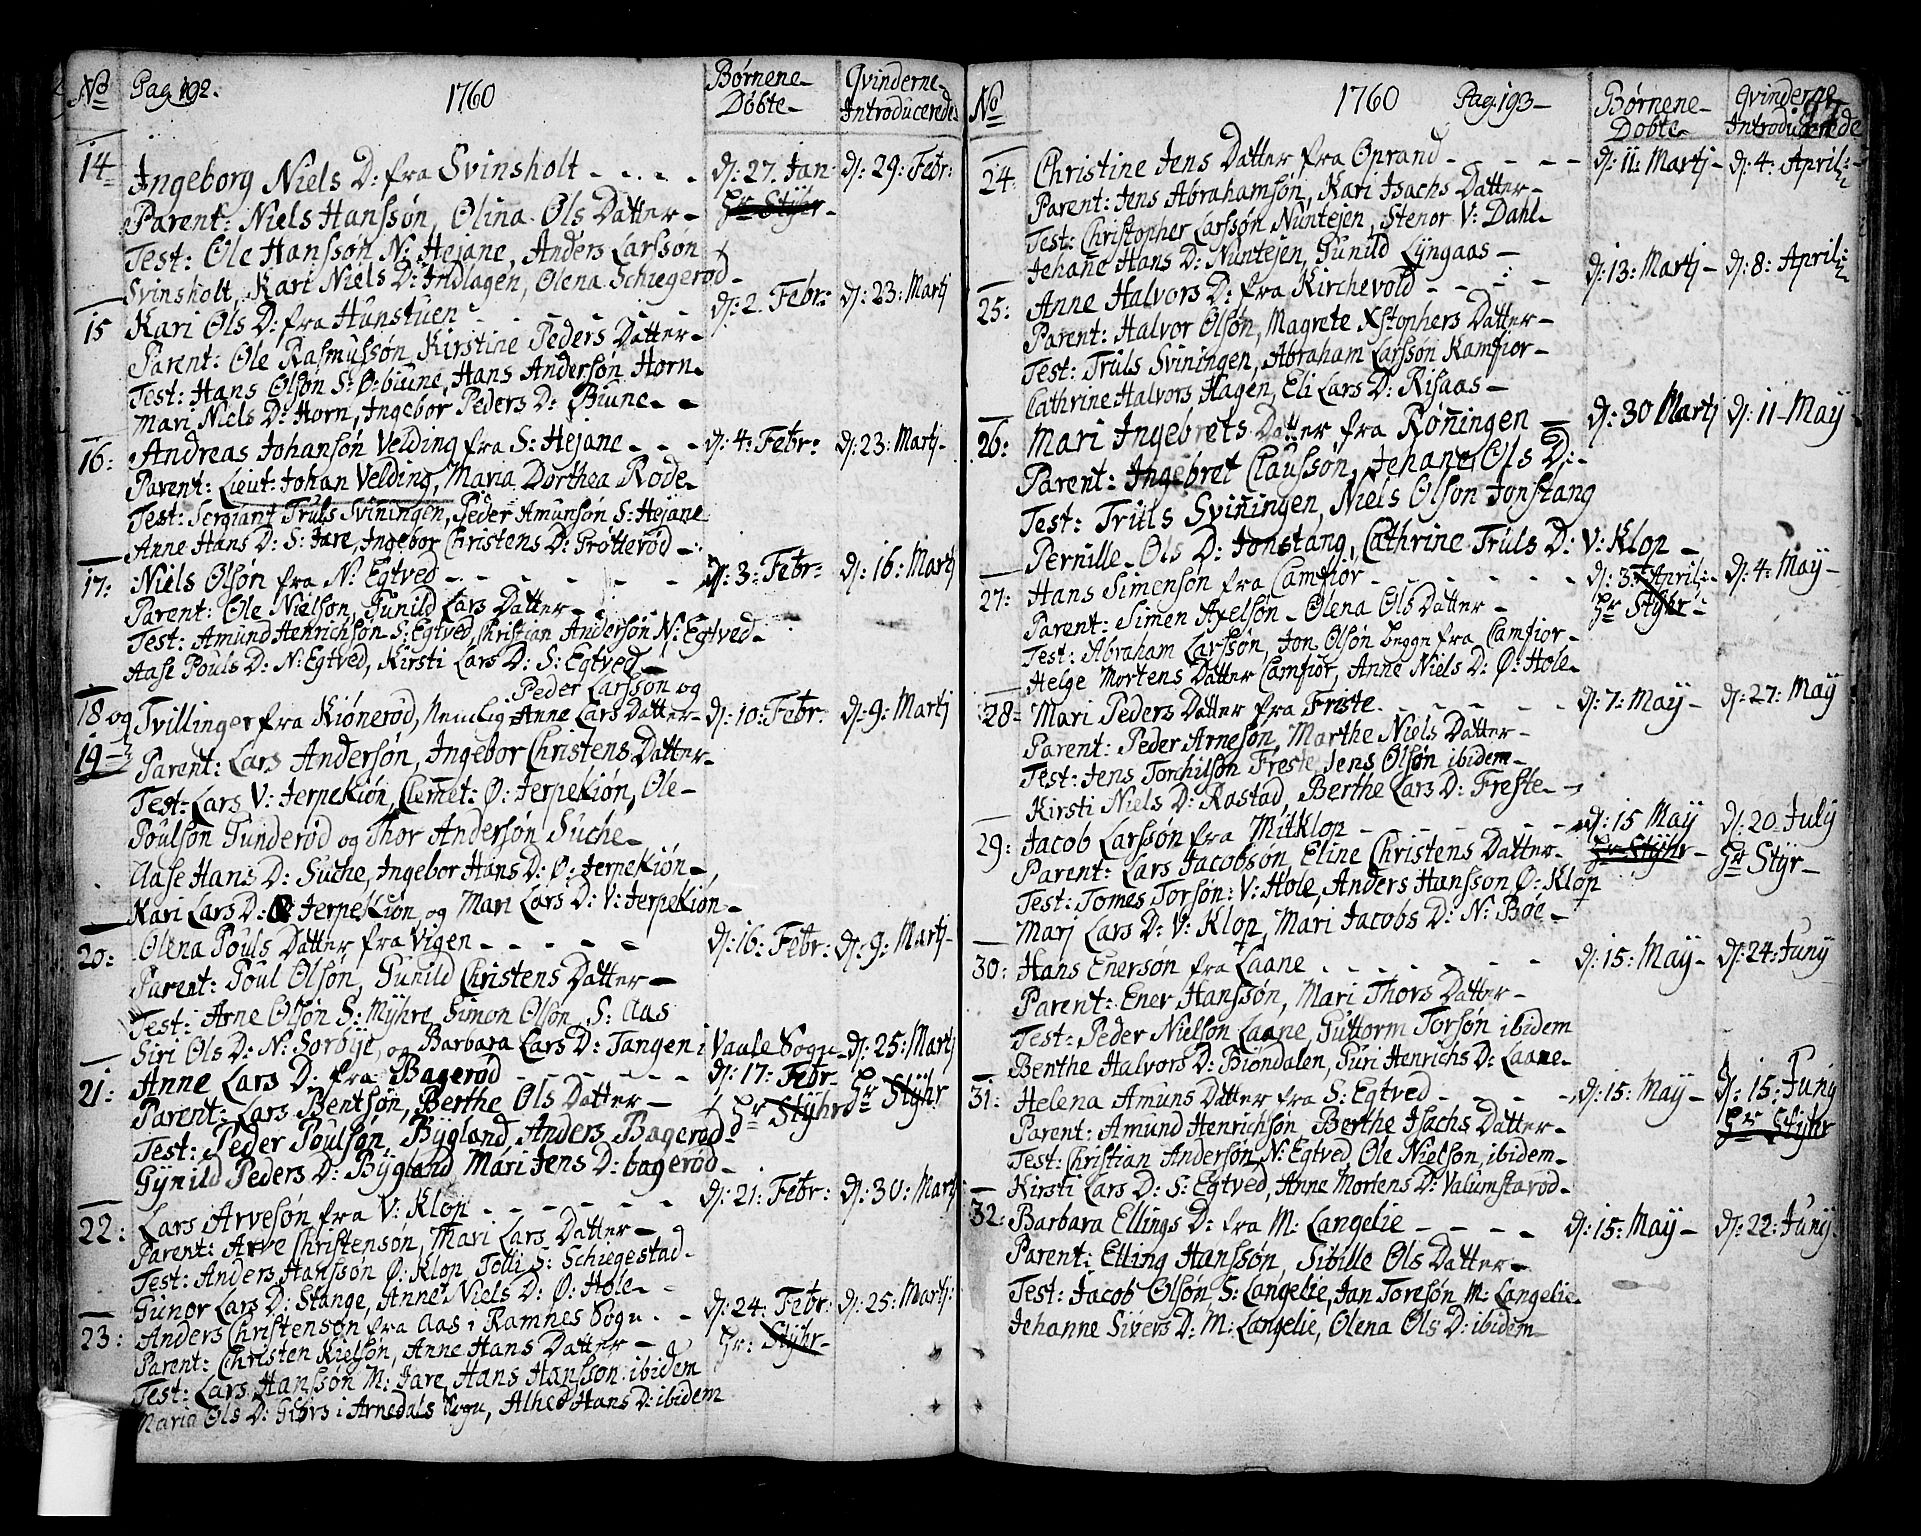 No Pag. 192. 1760 Børnene Døbte Qvinderne Introducerede
14 Ingeborg Niels D: fra Svinsholt - - - - d: 27. Jan: d: 29: Febr:
Parent: Niels Hanssøn, Olina Ols Datter Hr Stÿhr
Test: Ole Hanssøn N: Hejane, Anders Larssøn
Svinsholt, Kari Niels D: Indlagen, Olena Schiegerød
15 Kari Ols D: fra Hunstuen - - - - d: 2. Febr: d: 23: Martj
Parent: Ole Rasmussøn, Kirstine Peders Datter
Test: Hans Olsøn S: Ø: biune, Hans Andersøn Horn
Mari Niels D: Horn, Ingebor Peders D: Biune
16: Andreas Johansøn Velding fra S: Hejane - - - d: 4: Febr: d: 23: Martj
Parent: Lieut: Johan Velding, Maria Dorthea Rode
Test: Sergiant Truls Sviningen, Peder Amunsøn S: Hejane
Anne Hans D: S: Jare, Ingebor Christens D: Grotterød
17: Niels Olsøn fra N: Egtved - - - - d: 3: Febr: d: 16: Martj
Parent: Ole Nielsøn, Gunild Lars Datter
Test: Amund Henrichsøn S: Egtved, Christian Andersøn N: Egtved
Aase Pouls D: N: Egtved, Kirsti Lars D: S: Egtved
Peder Larssøn og
18 og Tvillinger fra Kiønerød, Nemlig Anne Lars Datter d: 10: Febr: d: 9: Martj
19 Parent: Lars Andersøn, Ingebor Christens Datter
Test: Lars V: Jerpekiøn, Clemet: Ø: Jerpekiøn, Ole
Poulsøn Gunderød og Thor Andersøn Suche
Aase Hans D: Suche, Ingebor Hans D: Ø: Jerpekiøn
Kari Lars D: Jerpekiøn, og Mari Lars D: V: Jerpekiøn
20: Olena Pouls Datter fra Vigen - - - - d: 16: Febr: d: 9: Martj
Parent: Poul Olsøn, Gunild Christens Datter
Test: Arne Olsøn S: Mÿhre, Simon Olsøn S: Aas
Siri Ols D: N: Sørbÿe, og Barbara Lars D: Tangen i Vaale Sogn d: 25: Martj
21: Anne Lars D: fra Bagerød - - - - d: 17: Febr Hr Stÿhr
Parent: Lars Bentsøn, Berthe Ols Datter Hr Stÿhr
Test: Peder Poulsøn Bÿgland, Anders Bagerød
Gÿnild Peders D: Bÿgland, Mari Jens D: bagerød
22: Lars Arvesøn fra V: Klop - - - - d: 21: Febr: d: 30: Martj
Parent: Arve Christensøn, Mari Lars Datter
Test: Anders Hanssøn Ø: Klop, Tolli S: Schiegestad
Gunor Lars D: Stange, Anne Niels D: Ø: Hole
23: Anders Christensøn fra Aas i Ramnes Sogn - - d: 24: Febr: d: 25: Martj:
Parent: Christen Nielsøn, Anne Hans Datter Hr: Stÿhr
Test: Lars Hanssøn M: Jare, Hans Hanssøn ibidem
Maria Ols D: i Arnedals Sogn, Alhed Hans D: ibidem
No 1760 Pag: 193 Børnene Døbte Qvinderne Introducerede
24: Christine Jens Datter fra Oprand - - - - d: 11: Martj d: 4: April:
Parent: Jens Abrahamsøn, Kari Isachs Datter
Test: Christopher Larssøn Nuntejen, Stenor V: Dahl
Jehane Hans D: Nuntejen, Gunild Lÿngaas
25: Anne Halvors D: fra Kirchevold - - - - d: 13: Martj d: 8: April:
Parent: Halvor Olsøn, Magrete Xstophers Datter
Test: Truls Sviningen, Abraham Larssøn Kamfior
Cathrine Halvors Hagen, Eli Lars D: Risaas
26: Mari Ingebrets Datter fra Røningen d: 30 Martj d: 11 May
Parent: Ingebret Claussøn, Jehane Ols D:
Test: Truls Sviningen, Niels Olsøn Jonstang
Pernille Ols D: Jonstang, Cathrine Truls D: V: Klop
27: Hans Simensøn fra Camfior - - - - d: 3: April: d: 4: May
Parent: Simen Axelsøn, Olena Ols Datter Hr Stÿhr
Test: Abraham Larssøn, Jon Olsøn begge fra Camfior
Helge Mortens Datter Camfior, Anne Niels D: Ø: Hole
28 Mari Peders Datter fra Freste - - - - d: 7: May d: 27: May
Parent: Peder Arnesøn, Marthe Niels Datter
Test: Jens Torchilsøn Freste, Jens Olsøn ibidem
Kirsti Niels D: Rastad, Berthe Lars D: Freste
29: Jacob Larssøn fra Mitklop - - - - d: 15 May d: 20 July
Parent: Lars Jacobsøn, Eline Christens Datter Hr Stÿhr Hr Stÿr
Test: Tomes Torsøn: V: Hole, Anders Hanssøn Ø: Klop
Marj Lars D: V: Klop, Mari Jacobs D: N: Bøe
30: Hans Enersøn fra Laane - - - - d: 15: May d: 24: Juny
Parent: Ener Hanssøn, Mari Thors Datter
Test: Peder Nielsøn Laane, Guttorm Torsøn ibidem
Berthe Halvors D: Biøndalen, Guri Henrichs D: Laane
31: Helena Amuns Datter fra S: Egtved - - - - d: 15: May d: 15: Juny
Parent: Amund Henrichsøn, Berthe Isachs Datter Hr Stÿhr
Test: Christian Andersøn, N: Egtved, Ole Nielsøn, ibidem
Kirsti Lars D: S: Egtved, Anne Mortens D: Valumstarød
32: Barbara Ellings D: fra M: Langelie - - - - d: 15: May d: 22: Juny
Parent: Elling Hanssøn, Sibille Ols Datter
Test: Jacob Olsøn S: Langelie, Jan Toresøn M: Langelie
Jehanne Sivers D: M: Langelie, Olena Ols D: ibidem